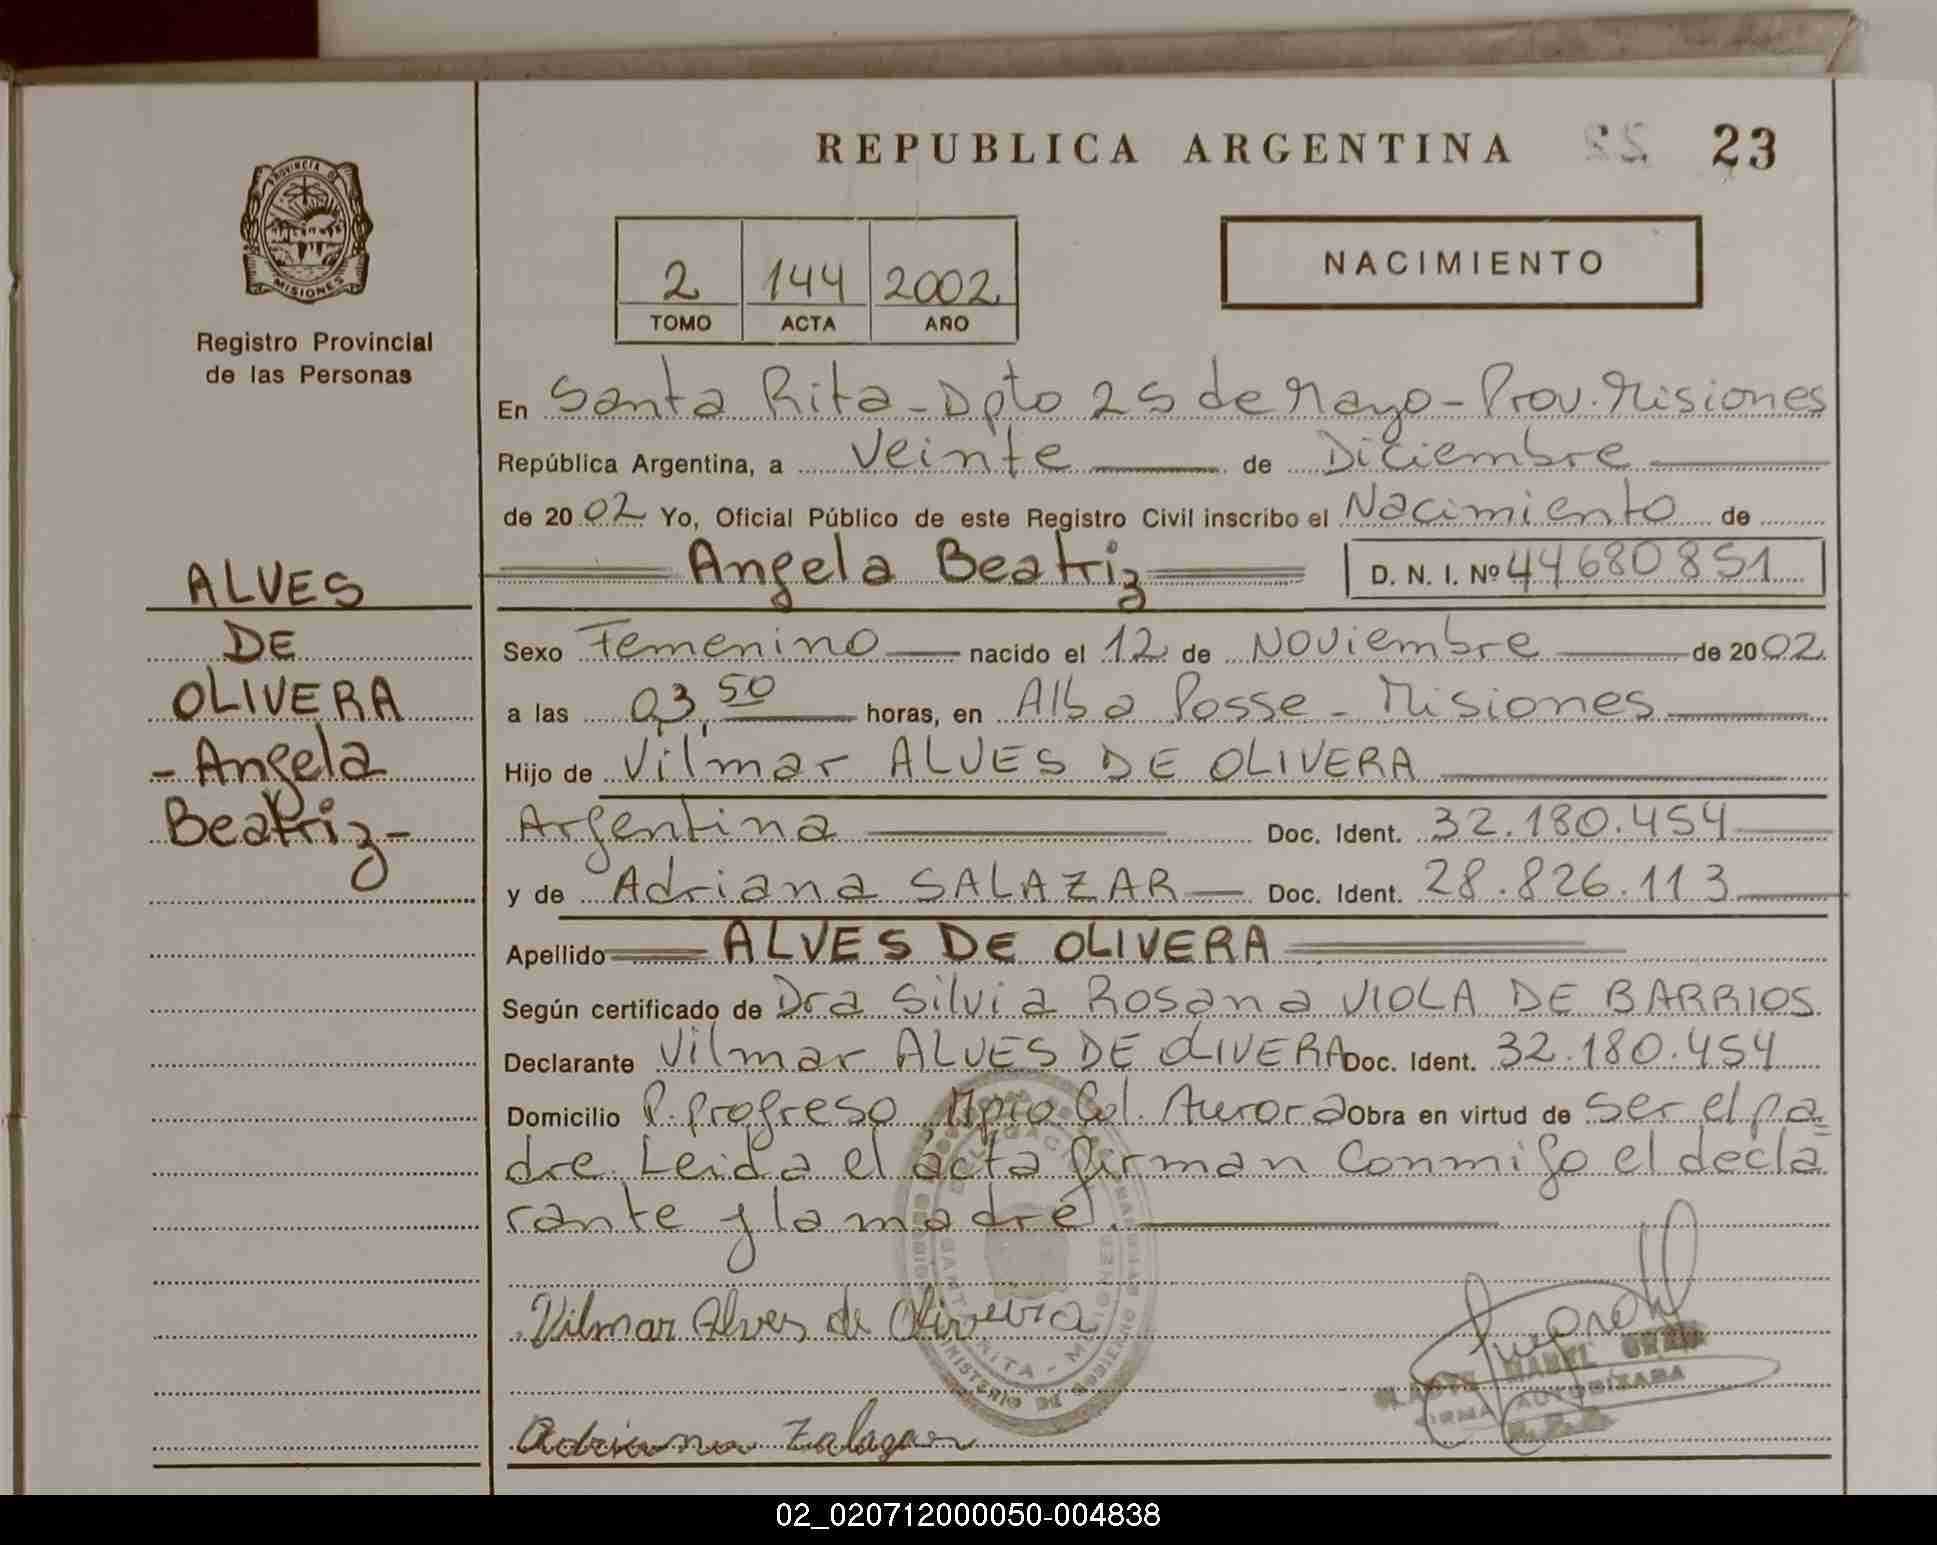 REPUBLICA ARGENTINA 22 23
PROVINCIA DE
MISIONES
Registro Provincial
de las Personas
2 144 2002
TOMO ACTA AÑO
NACIMIENTO
En Santa Rita - Dpto 25 de Mayo - Prov. Misiones
República Argentina, a Veinte de Diciembre
de 2002 Yo, Oficial Público de este Registro Civil inscribo el Nacimiento de
Angela Beatriz D. N. I. Nº 44680851
ALVES
DE
OLIVERA
- Angela
Beatriz -
Sexo Femenino nacido el 12 de Noviembre de 2002
a las 03,50 horas, en Alba Posse - Misiones
Hijo de Vilmar ALVES DE OLIVERA
Argentina Doc. Ident. 32.180.454
y de Adriana SALAZAR Doc. Ident. 28.826.113
Apellido ALVES DE OLIVERA
Según certificado de Dra Silvia Rosana VIOLA DE BARRIOS
Declarante Vilmar ALVES DE OLIVERA Doc. Ident. 32.180.454
Domicilio P. Progreso, Mpio Col. Aurora Obra en virtud de ser el pa
dre. Leida el acta firman conmigo el decla
rante y la madre.
Vilmar Alves de Oliveira
SANTA RITA - MISIONES
MINISTERIO DE GOBIERNO
MABEL
FIRMA AUTORIZADA
Adriana Zalazar
02_020712000050-004838